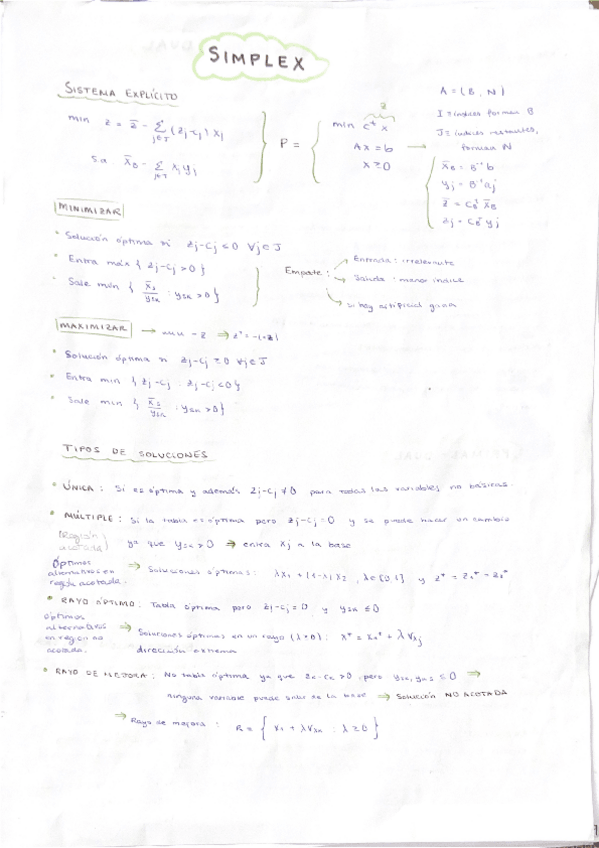 SIMPLEX
SISTEMA EXPLÍCITO
min z = z̄ - Σ j∈J (zj - cj) xj
s.a x̄B - Σ j∈J xj yj
P = { min cᵗ x
z
Ax = b →
x ≥ 0
A = (B, N)
I ≡ índices forman B
J ≡ índices restantes,
forman N
x̄B = B⁻¹ b
yj = B⁻¹ aj
z̄ = cBᵗ x̄B
zj = cBᵗ yj
MINIMIZAR
• Solución óptima si zj - cj ≤ 0 ∀j ∈ J
• Entra máx { zj - cj > 0 }
• Sale mín { x̄s / ysk : ysk > 0 }
Empate:
Entrada: irrelevante
Salida: menor índice
si hay artificial gana
MAXIMIZAR → min -z ⇒ z* = -(-z)
• Solución óptima si zj - cj ≥ 0 ∀j ∈ J
• Entra min { zj - cj : zj - cj < 0 }
• Sale mín { x̄s / ysk : ysk > 0 }
TIPOS DE SOLUCIONES
• ÚNICA: Si es óptima y además zj - cj ≠ 0 para todas las variables no básicas.
• MÚLTIPLE: Si la tabla es óptima pero zj - cj = 0 y se puede hacer un cambio
(Región acotada) ya que ysk > 0 ⇒ entra xj a la base
Óptimos alternativos en región acotada. ⇒ Soluciones óptimas: λx1 + (1-λ)x2, λ∈[0,1] y z* = z1* = z2*
• RAYO ÓPTIMO: Tabla óptima pero zj - cj = 0 y ysk ≤ 0
óptimos alternativos en región no acotada. ⇒ Soluciones óptimas en un rayo (λ ≥ 0): x* = x1* + λ vxj
dirección extrema
• RAYO DE MEJORA: No tabla óptima ya que zk - ck > 0 pero ≤ 0 ⇒
ninguna variable puede salir de la base ⇒ Solución NO ACOTADA
⇒ Rayo de mejora: = { v1 + λ : λ ≥ 0 }